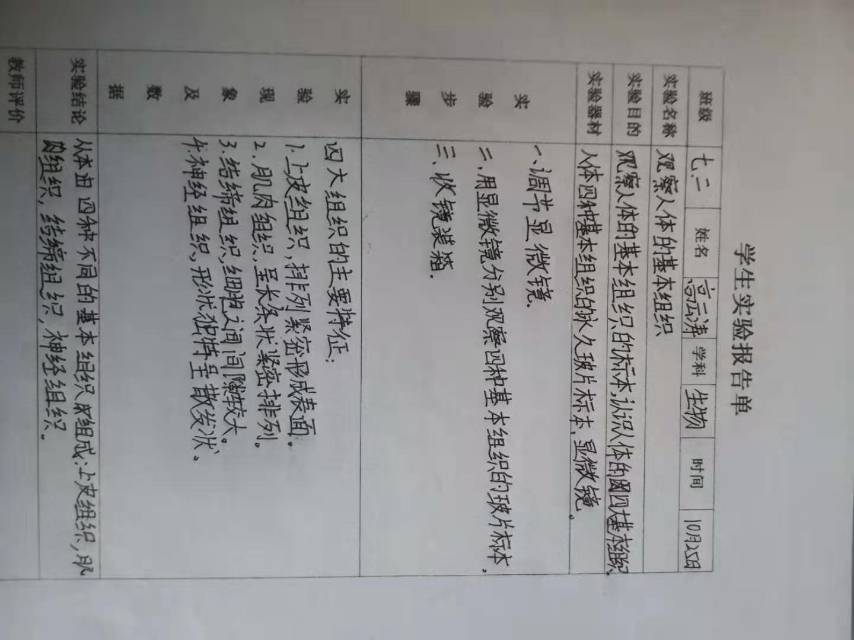 学生实验报告单
班级 七.二 姓名 高云涛 学科 生物 时间 10月25日
实验名称 观察人体的基本组织
实验目的 观察人体的基本组织的标本,认识人体的四大基本组织
实验器材 人体四种基本组织的永久玻片标本,显微镜。
实验步骤
一、调节显微镜.
二、用显微镜分别观察四种基本组织的玻片标本.
三、收镜装箱.
实验现象及数据
四大组织的主要特征:
1.上皮组织,排列紧密形成表面。
2.肌肉组织,呈长条状紧密排列。
3.结缔组织,细胞之间间隙较大。
4.神经组织,形状独特呈散发状。
实验结论
从本由四种不同的基本组织成组成:上皮组织,肌
肉组织,结缔组织,神经组织。
教师评价